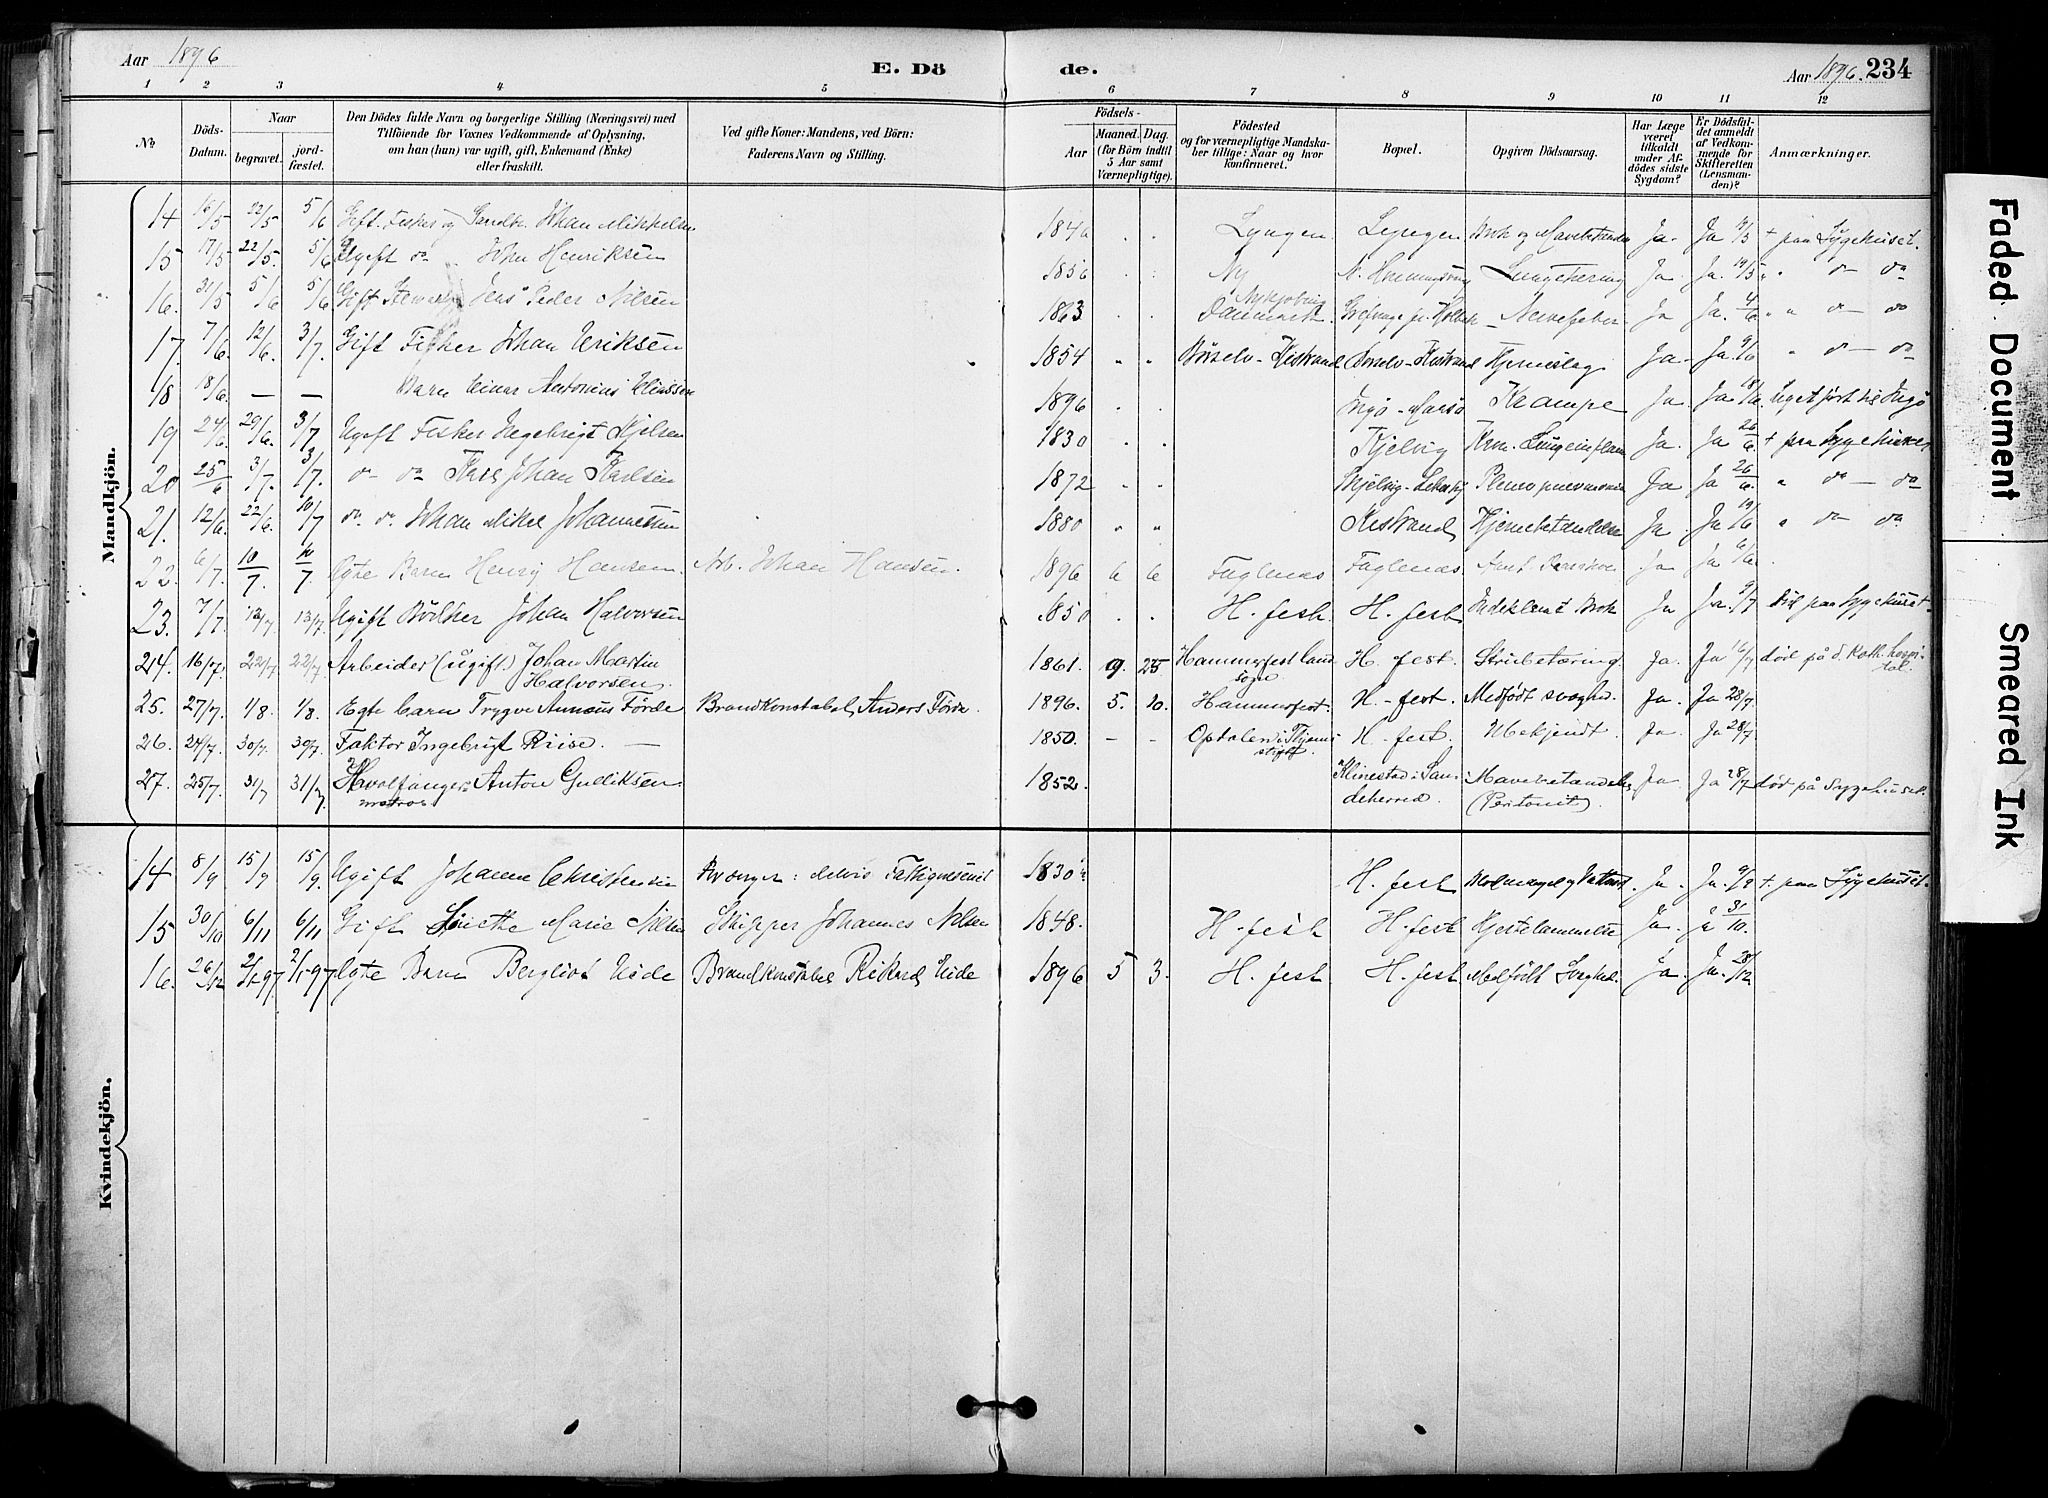 Aar 1896
E. Dö
de.
Aar 1896. 234
1 2 3 4 5 6 7 8 9 10 11 12
No
Döds-Datum.
Naar
begravet.
jord-fæstet.
Den Dödes fulde Navn og borgerlige Stilling (Næringsvei) med
Tilföiende for Voxnes Vedkommende af Oplysning,
om han (hun) var ugift, gift, Enkemand (Enke)
eller fraskilt.
Ved gifte Koner: Mandens, ved Börn:
Faderens Navn og Stilling.
Födsels-
Aar
Maaned. Dag.
(for Börn indtil
5 Aar samt
Værnepligtige).
Födested
og for værnepligtige Mandska-
ber tillige: Naar og hvor
konfirmeret.
Bopæl.
Opgiven Dödsaarsag.
Har Læge
været
tilkaldt
under Af-
dödes sidste
Sygdom?
Er Dödsfal-
det anmeldt
af Vedkom-
mende for
Skifteretten
(Lensman-
den)?
Anmærkninger.
Mandkjön.
14 16/5 22/5 5/6 Gift Fisker og Johan Mikkelsen 1840 Lyngen Lyngen Ja. Ja 19/5 + paa Sygehuset.
15 17/5 22/5. 5/6 Ugift do John Henriksen 1856 Ny Lungetæring Ja Ja. 19/5 " do do
16. 31/5 5/6 5/6 Gift Jens Peder Nilsen 1863 Nykjöbing Danmark Nervefeber Ja Ja. 4/6 " " do do
17. 7/6. 12/6. 3/7. Gift Fisker Johan Eriksen 1854 " " Börselv-Kistrand Börselv-Kistrand Hjerneslag Ja. Ja. 9/6 " do do
18 18/6. — — Barn Einar Antonius 1896 Ingö-Maasö Krampe Ja. Ja 18/6 Ingö
19 24/6. 29/6. 3/7 Ugift Fisker Ingebrigt 1830 Kjelvig Ja. Ja 26/6. + paa Sygehuset
20 25/6 3/7. 3/7. do do Karl Johan Karlsen 1872 " " Pleuropneumonia Ja Ja 26/6. " do do
21. 12/6. 22/6. 10/7 do. do. Johan Mikel Johannessen 1880 " " Kistrand Hjernebetændelse Ja Ja 19/6 " do do
22. 6/7. 10/7. 10/7. Ægte Barn Henry Hansen. Arb. Johan Hansen. 1896 6 6 Fuglenæs Fuglenæs. Ja Ja
23. 7/7. 13/7 13/7. Ugift Bödker Johan Halvorsen 1850 H. fest H. fest Indeklemt Brok Ja Ja. 9/7 Död paa Sygehuset
24. 16/7. 22/7 22/7 Arbeider (ugift.) Johan Martin
Halvorsen. 1861. 9. 25 Hammerfest land
sogn H. fest. Strubetæring Ja. Ja 16/7 död på d. Kath. hospi-
tal.
25. 27/7. 1/8. 1/8. Egte barn Trygve Annæus Förde Brandkonstabel Anders Förde. 1896. 5. 20. Hammerfest. H. fest. Medfödt svaghed. Ja. Ja 28/7.
26. 24/7. 30/7. 30/7. Faktor Ingebrigt Riise. — 1850. — — H. fest. Ubekjendt. Ja. Ja 28/7
27. 25/7. 31/7 31/7. Hvalfanger Anton Gulliksen.
matros 1852. Klinestad i San-
deherred. Mavebetændelse
(Peritonit) Ja. Ja 28/7 död på Sygehuset.
Kvindekjön.
14 8/9 15/9 15/9. Ugift Johanna Christensen Fattigvæsenet 1830 H. fest Ja. Ja. 9/9 +. paa Sygehuset.
15 30/10 6/11 6/11 Gift Marie Nilsen Skipper Johannes Nilsen 1848. H. fest H. fest Hjertelammelse Ja. Ja 31/10.
16. 26/12 2/1 97. 2/1 97 Ægte Barn Bergliot Eide Brandkonstabel Rikard Eide 1896 5 3. H. fest H. fest Medfödt Svaghed. Ja. Ja. 28/12
Faded Document
Smeared Ink